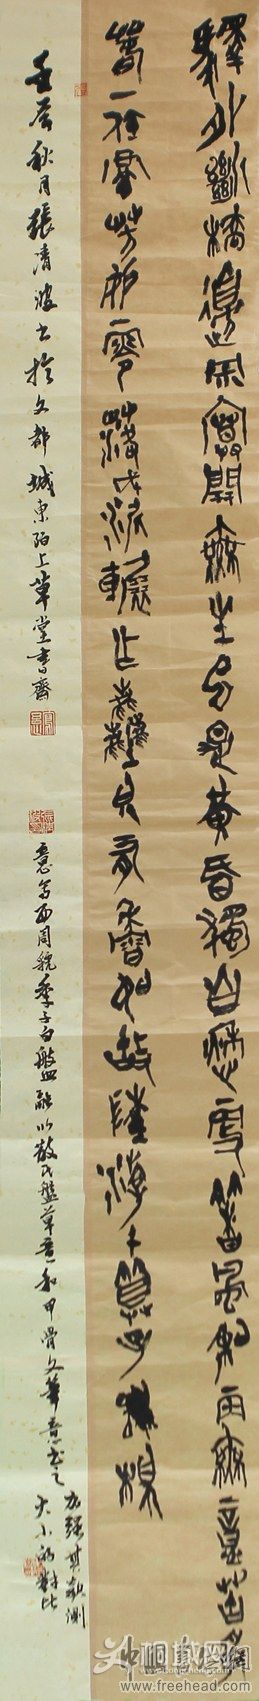 驛外斷橋邊寂寞開無主已是黃昏獨自愁更著風和雨無意苦爭
春一任群芳妒零落成泥碾作塵只有香如故陸游卜算子詠梅
壬辰秋月張清波書於文都城東陌上草堂書齋
意寫西周虢季子白盤融以散氏盤草意和甲骨文筆意書之
加强其欹側
大小的對比
www.freehead.com